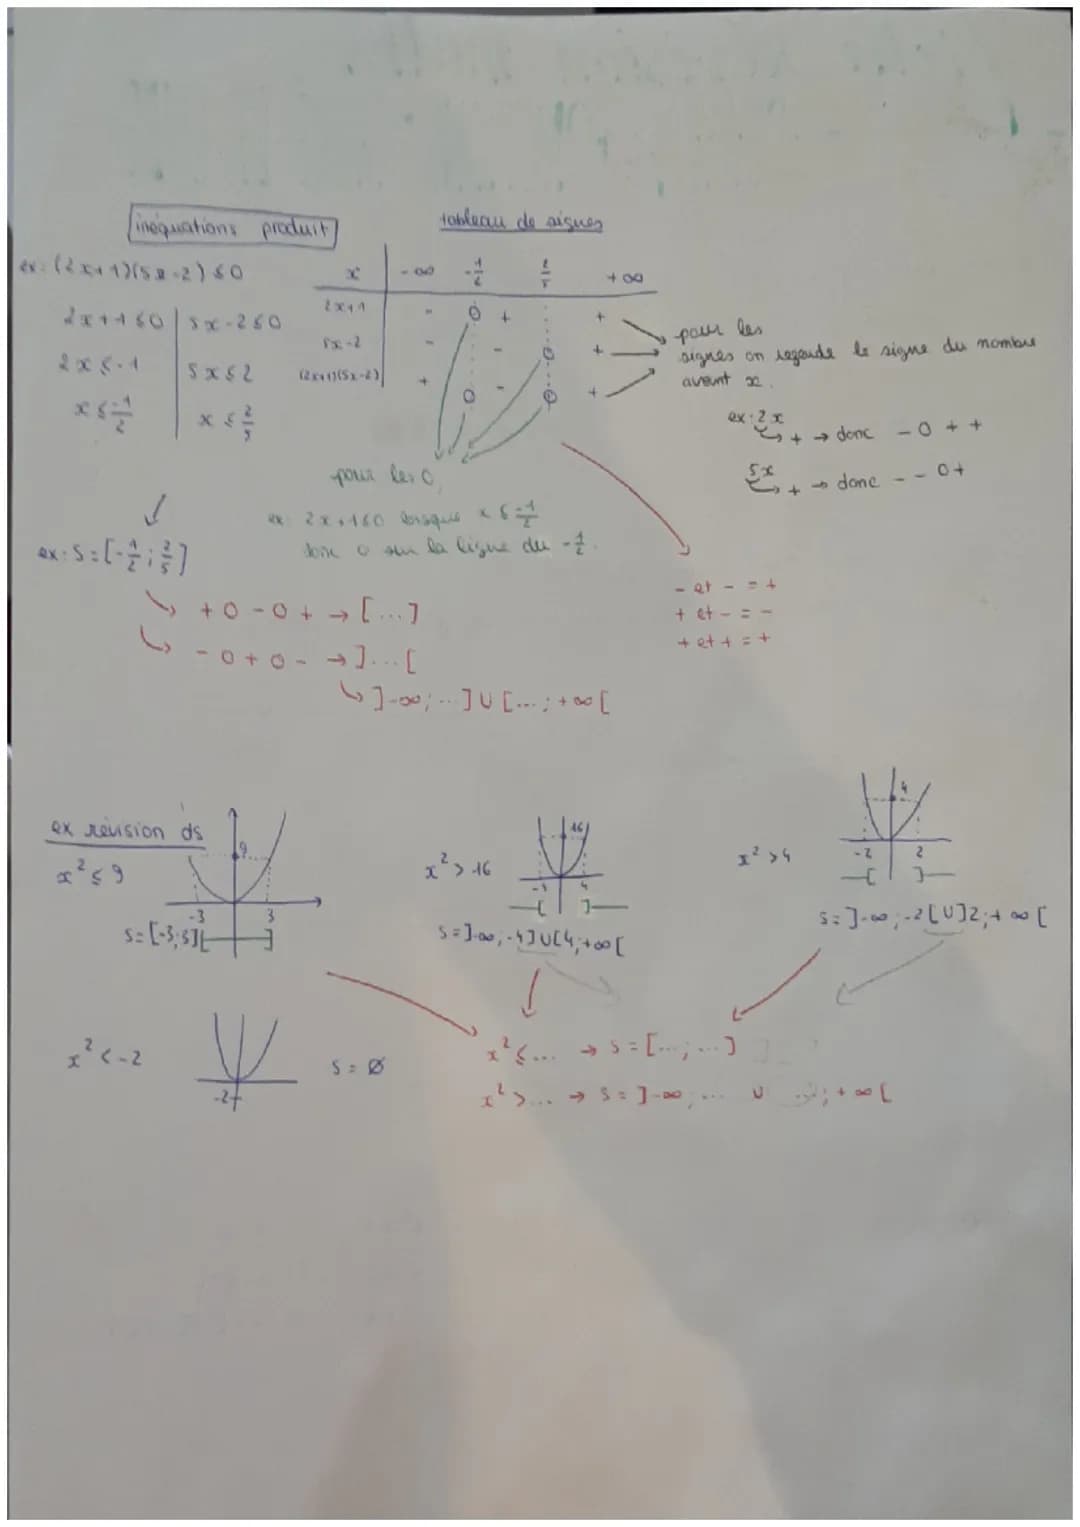 inéquations produit
tableau de signes
ex: (2x+1)(5x-2) ≤ 0
x | -∞ -1/2 2/5 +∞
2x+1 | - 0 + +
5x-2 | - - 0 +
(2x+1)(5x-2) | + 0 - 0 +
2x+1≤0 | 5x-2≤0
2x≤-1 | 5x≤2
x≤-1/2 | x≤2/5
pour les
signes on regarde le signe du nombre
avant x.
ex: 2x
↳ + → donc - 0 + +
5x
↳ + → donc - - 0 +
pour les 0,
ex: 2x+1≤0 lorsque x≤-1/2
donc 0 sur la ligne du -1/2.
ex: S=[-1/2;2/5]
↳ + 0 - 0 + → [...]
↳ - 0 + 0 - → ]...[
↳ ]-∞;...] U [...;+∞[
- et - = +
+ et - = -
+ et + = +
ex révision ds
x²≤9
9
-3 3
S=[-3;3]
x²>16
16
-4 4
S=]-∞;-4]U[4;+∞[
x²>4
4
-2 2
S=]-∞;-2[U]2;+∞[
x²<-2
-2
S=Ø
x²≤... → S=[...;...]
x²>... → S=]-∞;... U ...;+∞[